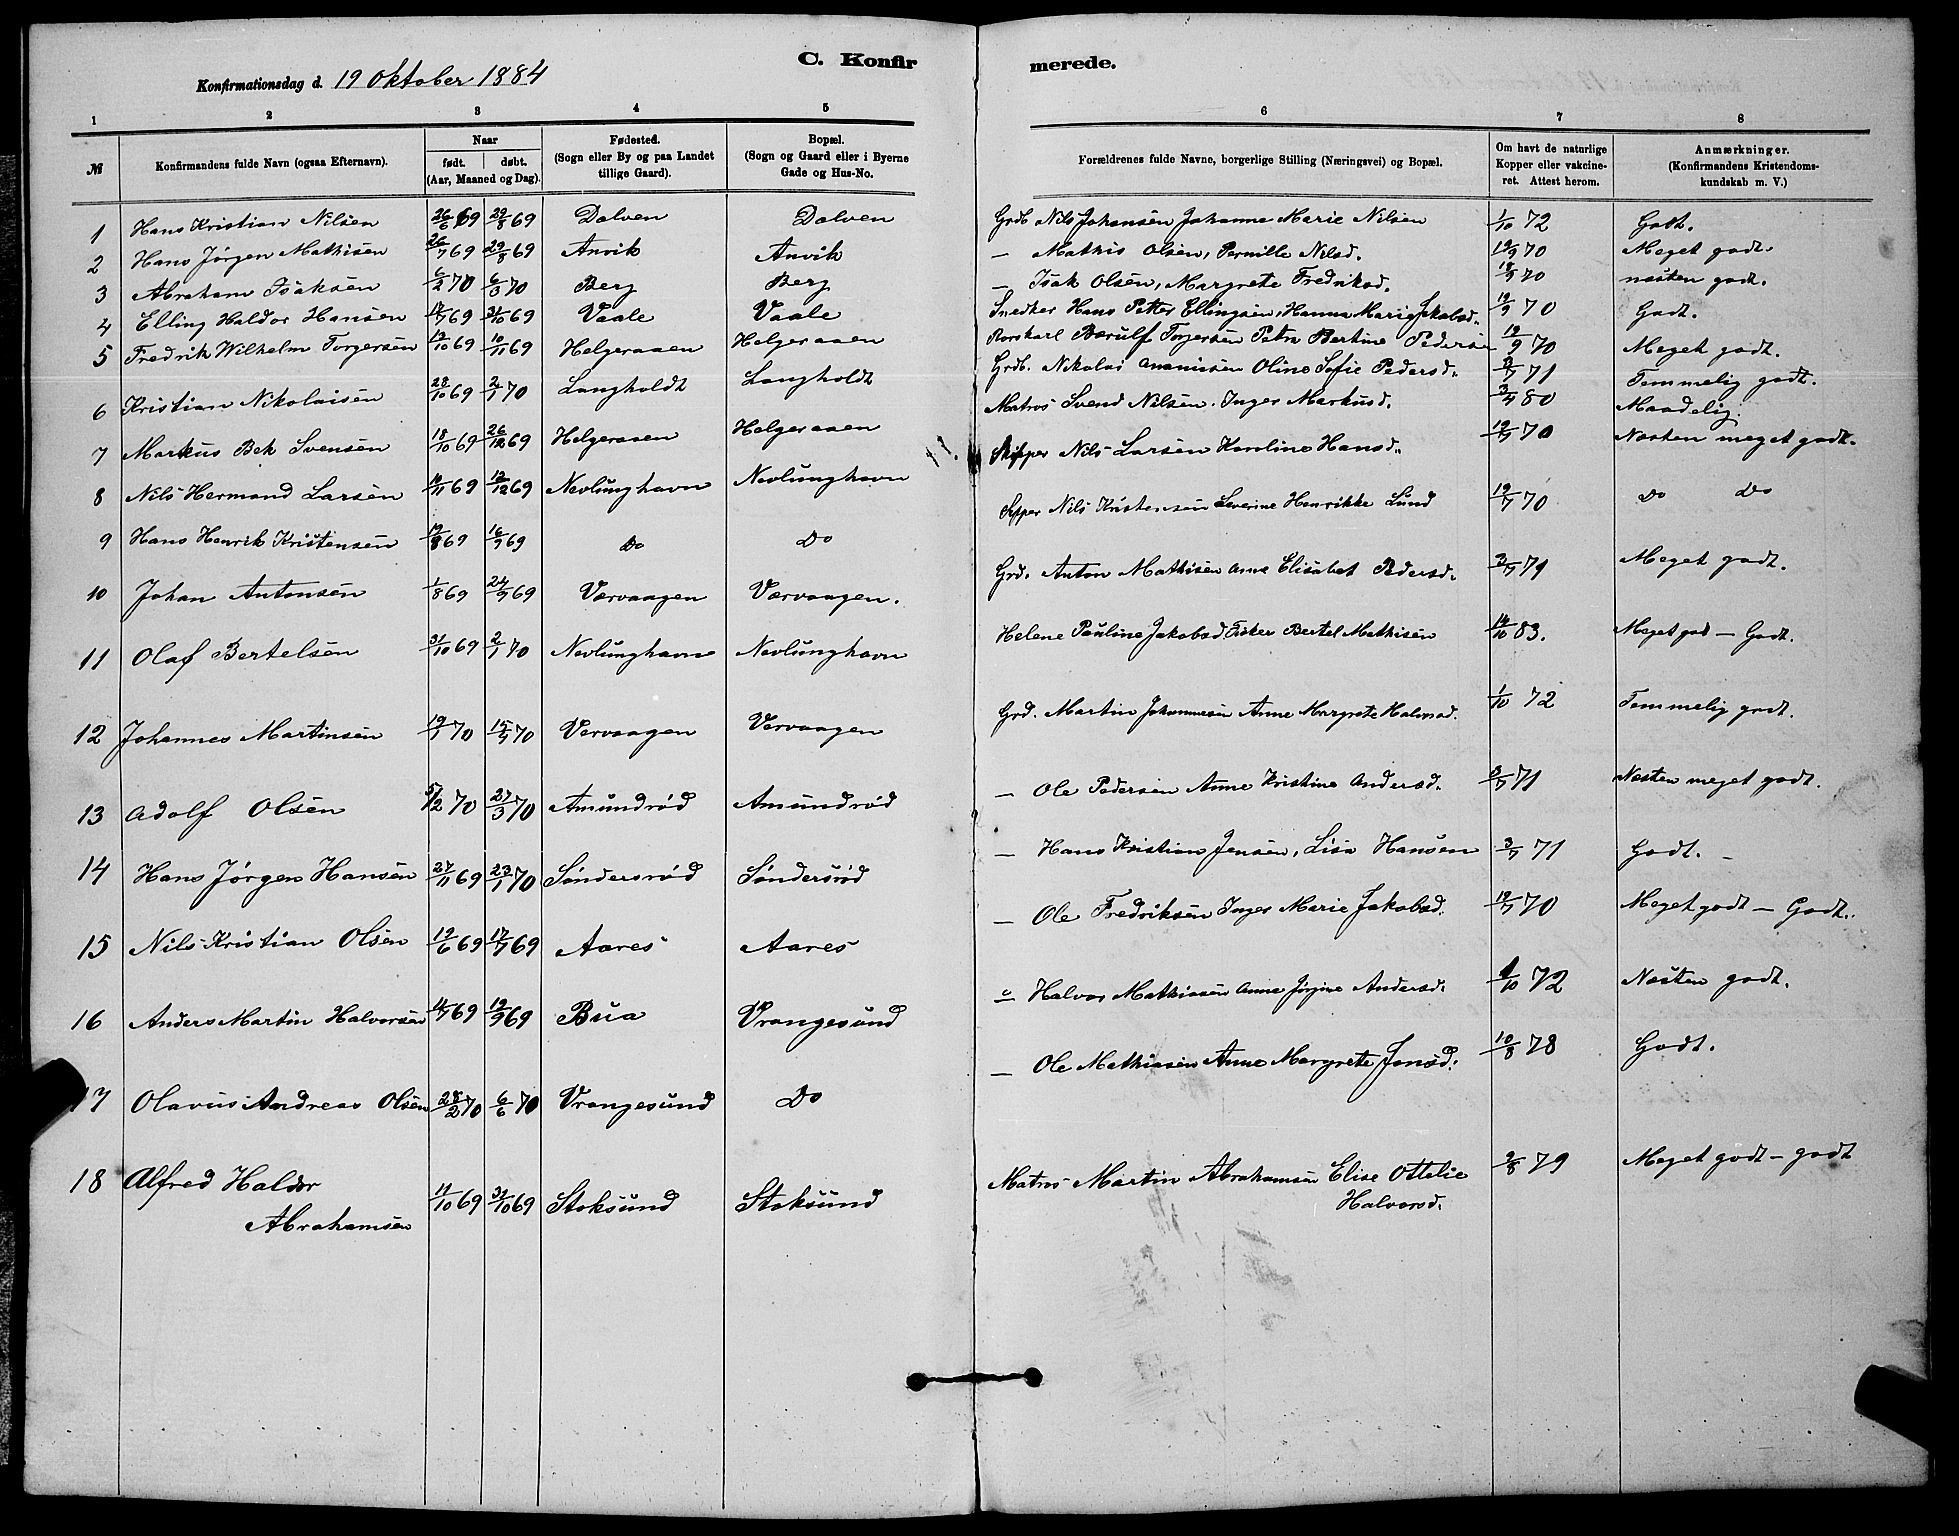 C. Konfirmerede.
Konfirmationsdag d. 19 Oktober 1884
1 2 3 4 5 6 7 8
№ | Konfirmandens fulde Navn (ogsaa Efternavn). | Naar født. døbt. (Aar, Maaned og Dag). | Fødested. (Sogn eller By og paa Landet tillige Gaard). | Bopæl. (Sogn og Gaard eller i Byerne Gade og Hus-No. | Forældrenes fulde Navne, borgerlige Stilling (Næringsvei) og Bopæl. | Om havt de naturlige Kopper eller vakcineret. Attest herom. | Anmærkninger. (Konfirmandens Kristendomskundskab m. V.)
1 Hans Kristian Nilsen 26/6 69 29/8 69 Dolven Dolven Grdb. Nils Johansen Johanne Marie Nilsen 1/10 72 Godt.
2 Hans Jørgen Mathisen 26/7 69 29/8 69 Anvik Anvik — Mathis Olsen, Pernille Nilsd. 19/9 70 Meget godt.
3 Abraham Isaksen 6/2 70 6/3 70 Berg Berg — Isak Olsen, Margrete Fredriksd. 19/9 70 næsten godt.
4 Elling Haldor Hansen 17/7 69 31/10 69 Vaale Vaale Snedker Hans Petter Ellingsen, Hanna Marie Jakobsd. 19/9 70 Godt.
5 Fredrik Wilhelm Torgersen 12/10 69 10/11 69 Helgeraaen Helgeraaen Rorskarl Bærulf Torgersen Petra Bertine Pedersen 19/9 70 Meget godt.
6 Kristian Nikolaisen 28/10 69 2/1 70 Langholdt Langholdt Grdb. Nikolai Ananiasen Oline Sofie Pedersd. 3/7 71 Temmelig godt.
7 Markus Bek Svensen 18/10 69 26/12 69 Helgeraaen Helgeraaen Matros Svend Nilsen. Inger Markusd. 3/4 80 Maadelig.
8 Nils Hermand Larsen 10/11 69 12/12 69 Nevlunghavn Nevlunghavn Skipper Nils Larsen Karoline Hansd. 19/7 70 Næsten meget godt.
9 Hans Henrik Kristensen 19/8 69 16/9 69 Do Do Skpper Nils Kristensen Severine Henrikke Lund 19/7 70 Do Do
10 Johan Antonsen 1/8 69 24/9 69 Værvaagen Værvaagen. Grd. Anton Mathisen Anne Elisabet Pedersd. 3/7 71 Meget godt.
11 Olaf Bertelsen 31/10 69 2/1 70 Nevlunghavn Nevlunghavn Helene Pauline Jakobsd Fisker Bertel Mathisen 14/10 83. Meget god — Godt.
12 Johannes Martinsen 19/1 70 15/4 70 Vervaagen Vervaagen Grd. Martin Johannesen Anne Margrete Halvorsd. 1/10 72 Temmelig godt.
13 Adolf Olsen 5/2 70 27/3 70 Amundrød Amundrød — Ole Pedersen Anne Kristine Andersd. 3/7 71 Næsten meget godt.
14 Hans Jørgen Hansen 27/11 69 23/1 70 Søndersrød Søndersrød — Hans Kristian Jensen, Lisa Hansen 3/7 71 Godt. —
15 Nils Kristian Olsen 19/6 69 17/7 69 Aares Aares — Ole Fredriksen Inger Marie Jakobsd. 19/7 70 Meget godt — Godt.
16 Anders Martin Halvorsen 14/7 69 19/9 69 Bua Vrangesund — Halvor Mathiasen Anne Jørgine Andersd. 1/10 72 Næsten godt.
17 Olavus Andreas Olsen 28/2 70 6/6 70 Vrangesund Do — Ole Mathiasen Anne Margrete Jonsd. 10/8 78 Godt.
18 Alfred Haldor Abrahamsen 11/10 69 31/10 69 Stoksund Stoksund Matros Martin Abrahamsen Elise Ottelie Halvorsd. 9/8 79 Meget godt — godt